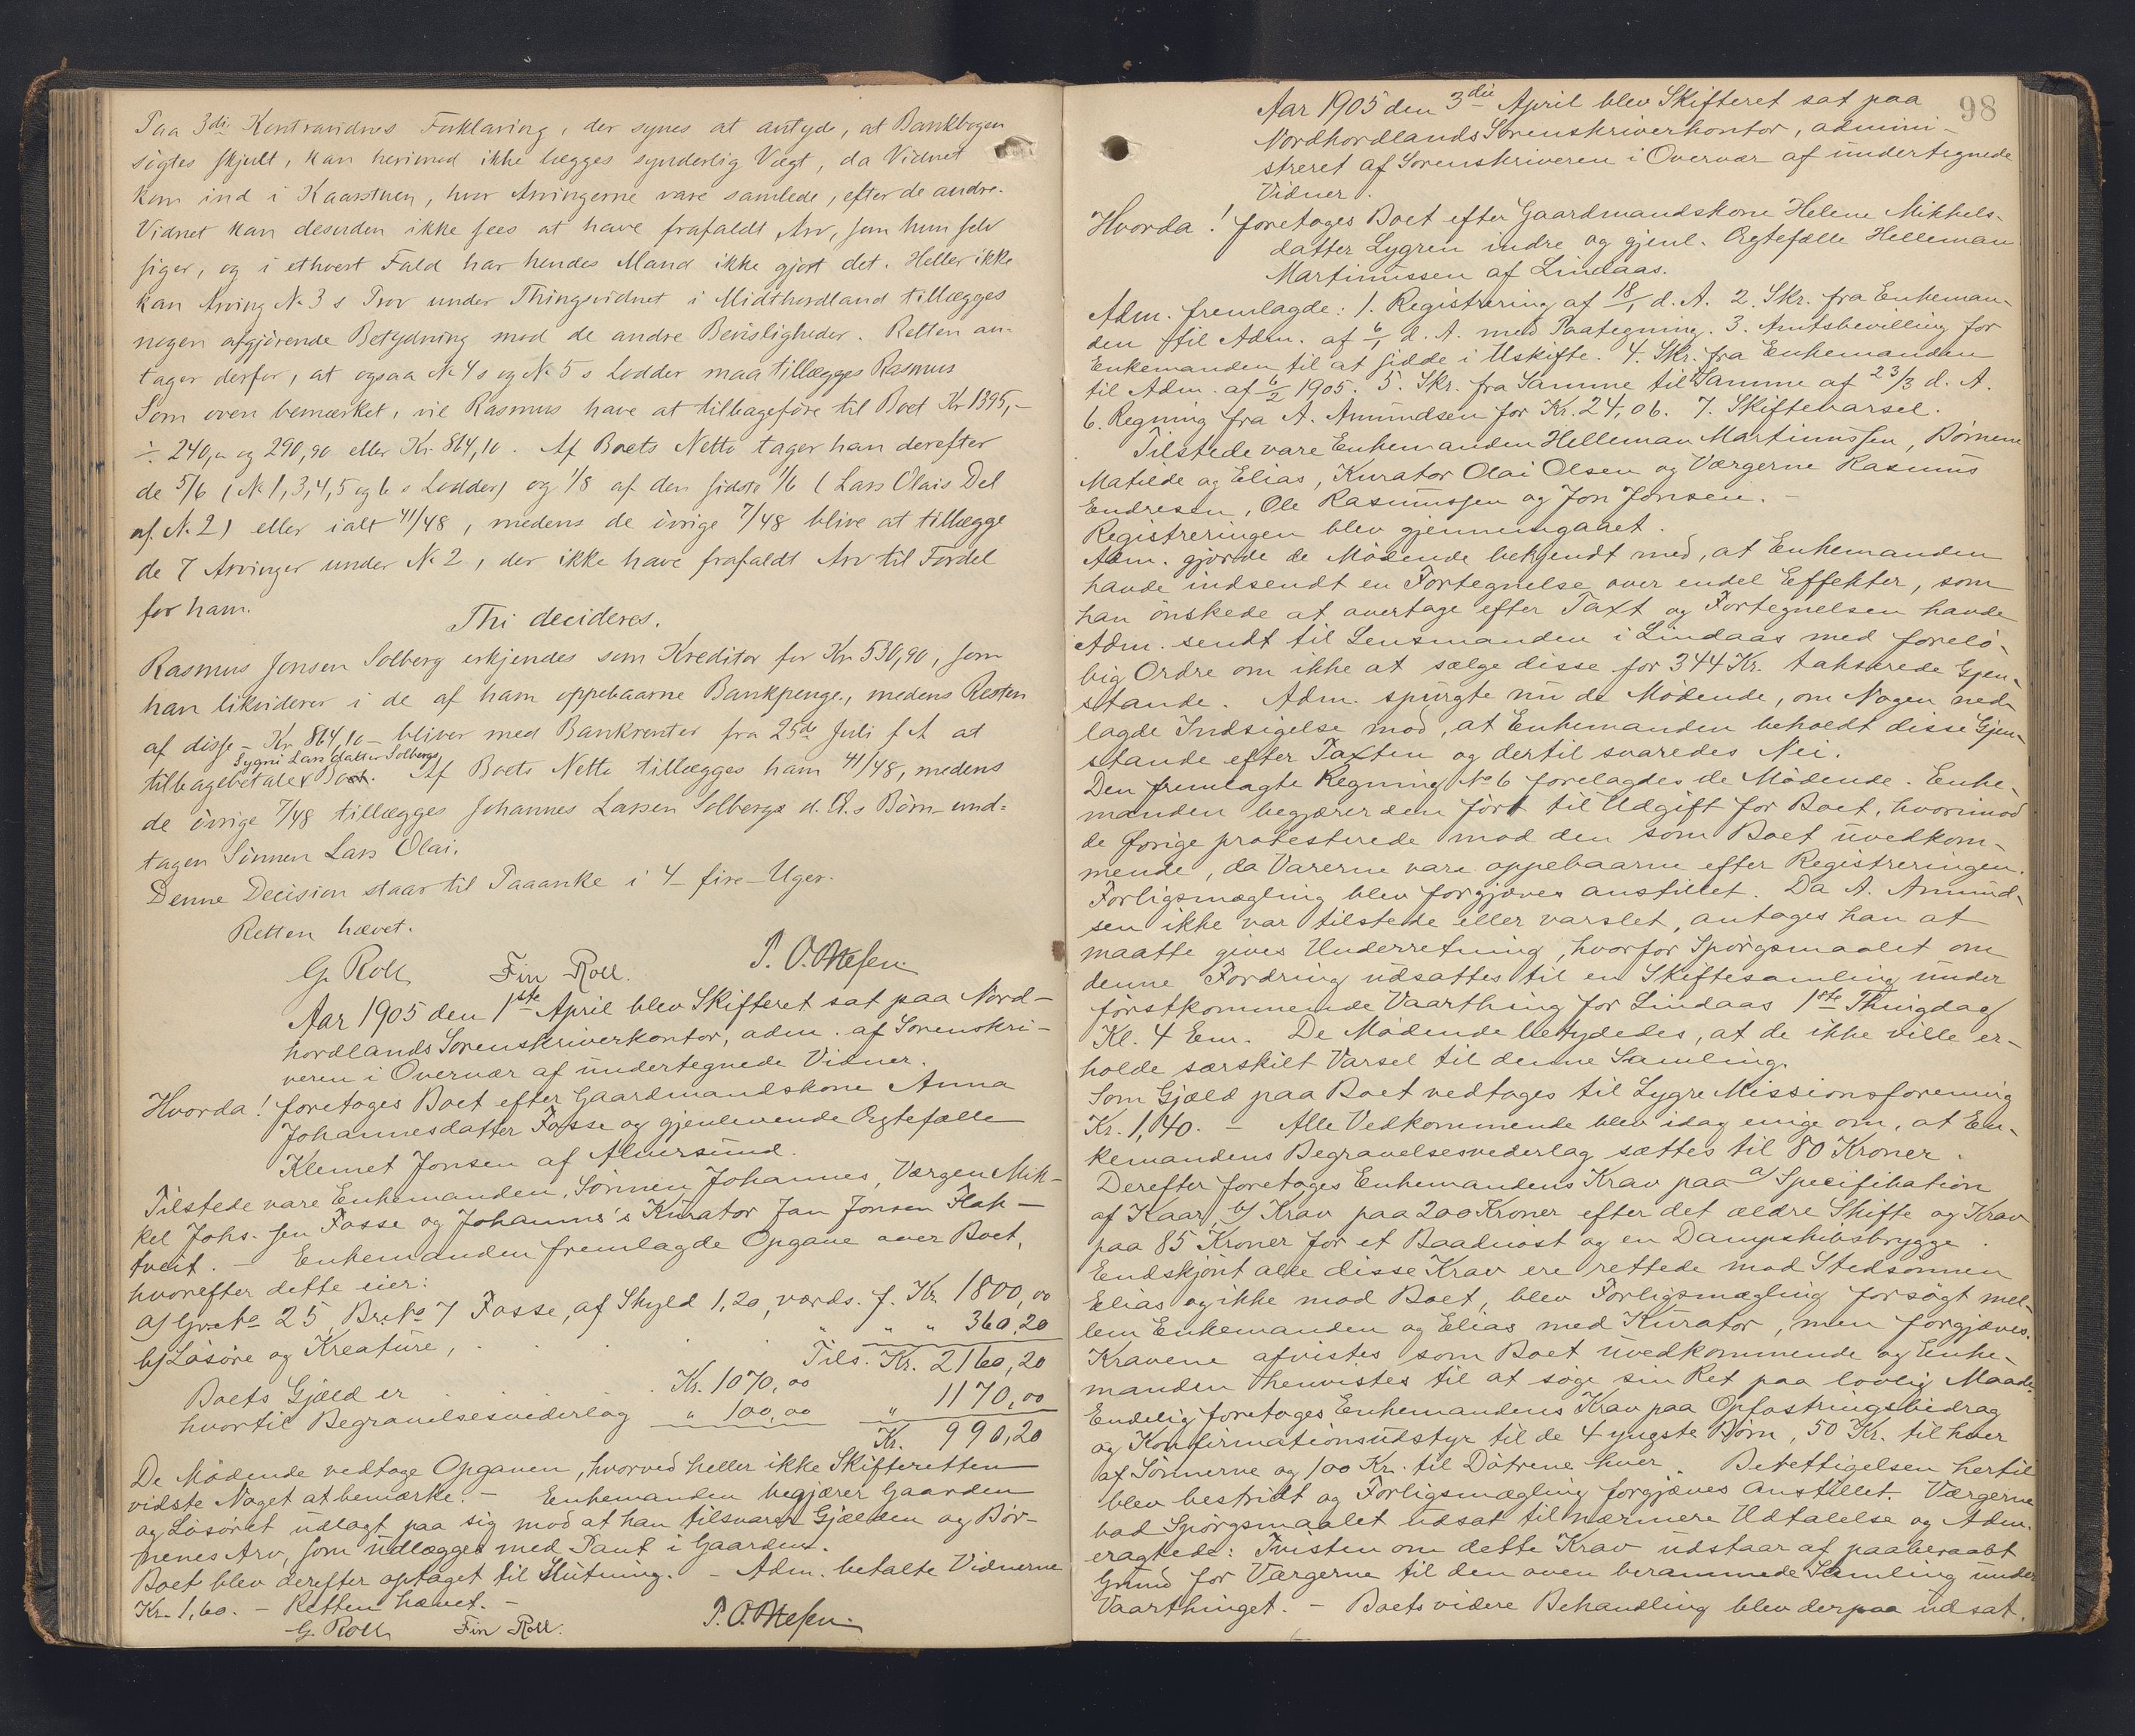 Paa 3di Kontravidnes Forklaring, der synes at antyde, at Bankbogen
søgtes skjult, kan herimod ikke lægges synderlig Vægt, da Vidnet
kom ind i Kaarstuen, hvor Arvingerne vare samlede, efter de andre.
Vidnet kan desuden ikke sees at have frafaldt Arv, som hun selv
siger, og i ethvert Fald har hendes Mand ikke gjort det. Heller ikke
kan Arving No 3 s Prov under Thingsvidnet i Midthordland tillægges
nogen afgjørende Betydning mod de andre Bevisligheder. Retten an-
tager derfor, at ogsaa No 4 s og No 5 s Lodder maa tillægges Rasmus
Som oven bemærket, vil Rasmus have at tilbageføre til Boet Kr 1395,-
÷ 240,00 og 290,90 eller Kr. 864,10. Af Boets Netto tager han derefter
de 5/6 (No 1, 3, 4, 5 og 6 s Lodder) og 1/8 af den sidste 1/6 (Lars Olais Del
af No. 2) eller ialt 41/48, medens de övrige 7/48 blive at tillægge
de 7 Arvinger under No 2, der ikke have frafaldt Arv til Fordel
for ham.
Thi decideres.
Rasmus Jonsen Solberg erkjendes som Kreditor for Kr 530,90, som
han likviderer i de af ham oppebaarne Bankpenge, medens Resten
af disse - Kr 864,10 - bliver med Bankrenter fra 25de Juli f A at
Sygni Larsdatter Solbergs
tilbagebetale Boet. Af Boets Netto tillægges ham 41/48, medens
de övrige 7/48 tillægges Johannes Larsen Solbergs d. Æ.s Børn und-
tagen Sönnen Lars Olai.
Denne Decision staar til Paaanke i 4 - fire - Uger.
Retten hævet.
G. Roll Fin Roll. P. O. Næsen
Aar 1905 den 1ste April blev Skifteret sat paa Nord-
hordlands Sorenskriverkontor, adm. af Sorenskri-
veren i Overvær af undertegnede Vidner.
Hvorda! foretoges Boet efter Gaardmandskone Anna
Johannesdatter Fosse og gjenlevende Ægtefælle
Klemet Jonsen af Alversund.
Tilstede vare Enkemanden, Sönnen Johannes, Værgen Mik-
kel Johs. sen Fosse og Johannes's Kurator Jan Jonsen Flak-
tveit. - Enkemanden fremlagde Opgave over Boet,
hvorefter dette eier:
a/ Gr. No 25, Br. No 7 Fosse, af Skyld 1,20, værds. f. Kr. 1800,00
b/ Løsøre og Kreature, . . . " " " 360,20
Tils. Kr. 2160,20
Boets Gjæld er . . . . Kr. 1070,00
hvortil Begravelsesvederlag " 100,00 " 1170,00
Kr. 990,20
De Mödende vedtoge Opgaven, hvorved heller ikke Skifteretten
vidste Noget at bemærke. - Enkemanden begjærer Gaarden
og Løsøret udlagt paa sig mod at han tilsvarer Gjælden og Bör-
nenes Arv, som udlægges med Pant i Gaarden.
Boet blev derefter optaget til Slutning. - Adm. betalte Vidnerne
Kr. 1,60. - Retten hævet. -
G. Roll Fin Roll. P. O. Næsen
98
Aar 1905 den 3die April blev Skifteret sat paa
Nordhordlands Sorenskriverkontor, admini-
streret af Sorenskriveren i Overvær af undertegnede
Vidner.
Hvorda! foretoges Boet efter Gaardmandskone Helene Mikkels-
datter Lygren indre og gjenl. Ægtefælle Helleman
Martinussen af Lindaas.
Adm. fremlagde: 1. Registrering af 18/1 d. A. 2. Skr. fra Enkeman-
den til Adm. af 6/1 d. A. med Paategning. 3. Amtsbevilling for
Enkemanden til at sidde i Uskifte. 4. Skr. fra Enkemanden
til Adm. af 6/2 1905. 5. Skr. fra Samme til Samme af 23/3 d. A.
6. Regning fra A. Amundsen for Kr. 24,06. 7. Skiftevarsel.
Tilstede vare Enkemanden Helleman Martinussen, Børnene
Matilde og Elias, Kurator Olai Olsen og Værgerne Rasmus
Endresen, Ole Rasmussen og Jon Jonsen. -
Registreringen blev gjennemgaaet.
Adm. gjorde de Mödende bekjendt med, at Enkemanden
havde indsendt en Fortegnelse over endel Effekter, som
han ønskede at overtage efter Taxt og Fortegnelsen havde
Adm. sendt til Lensmanden i Lindaas med forelö-
big Ordre om ikke at sælge disse for 344 Kr. takserede Gjen-
stande. Adm. spurgte nu de Mödende, om Nogen ned-
lagde Indsigelse mod, at Enkemanden beholdt disse Gjen-
stande efter Taxten og dertil svaredes Nei.
Den fremlagte Regning No 6 forelagdes de Mödende. Enke-
manden begjærer den ført til Udgift for Boet, hvorimod
de øvrige protesterede mod den som Boet uvedkom-
mende, da Varerne vare oppebaarne efter Registreringen.
Forligsmægling blev forgjæves anstillet. Da A. Amund-
sen ikke var tilstede eller varslet, antages han at
maatte gives Underretning, hvorfor Spörgsmaalet om
denne Fordring udsattes til en Skiftesamling under
förstkommende Vaarthing for Lindaas 1ste Thingdag
Kl. 4 Em. De Mödende betydedes, at de ikke ville er-
holde særskilt Varsel til denne Samling.
Som Gjæld paa Boet vedtoges til Lygre Missionsforening
Kr. 1,40. - Alle Vedkommende blev idag enige om, at En-
kemandens Begravelsesvederlag sættes til 80 Kroner.
Derefter foretoges Enkemandens Krav paa a/ Specifikation
af Kaar, b/ Krav paa 200 Kroner efter det ældre Skifte og Krav
paa 85 Kroner for et Baadnöst og en Dampskibsbrygge.
Endskjönt alle disse Krav ere rettede mod Stedsönnen
Elias og ikke mod Boet, blev Forligsmægling forsögt mel-
lem Enkemanden og Elias med Kurator, men forgjæves.
Kravene afvistes som Boet uvedkommende og Enke-
manden henvistes til at söge sin Ret paa lovlig Maade.
Endelig foretoges Enkemandens Krav paa Opfostringsbidrag
og Konfirmationsudstyr til de 4 yngste Börn, 50 Kr. til hver
af Sönnerne og 100 Kr. til Dötrene hver. Berettigelsen hertil
blev bestridt og Forligsmægling forgjæves anstillet. Værgerne
bad Spörgsmaalet udsat til nærmere Udtalelse og Adm.
eragtede: Tvisten om dette Krav udstaar af paaberaabt
Grund for Værgerne til den oven berammede Samling under
Vaarthinget. - Boets videre Behandling blev derpaa udsat.